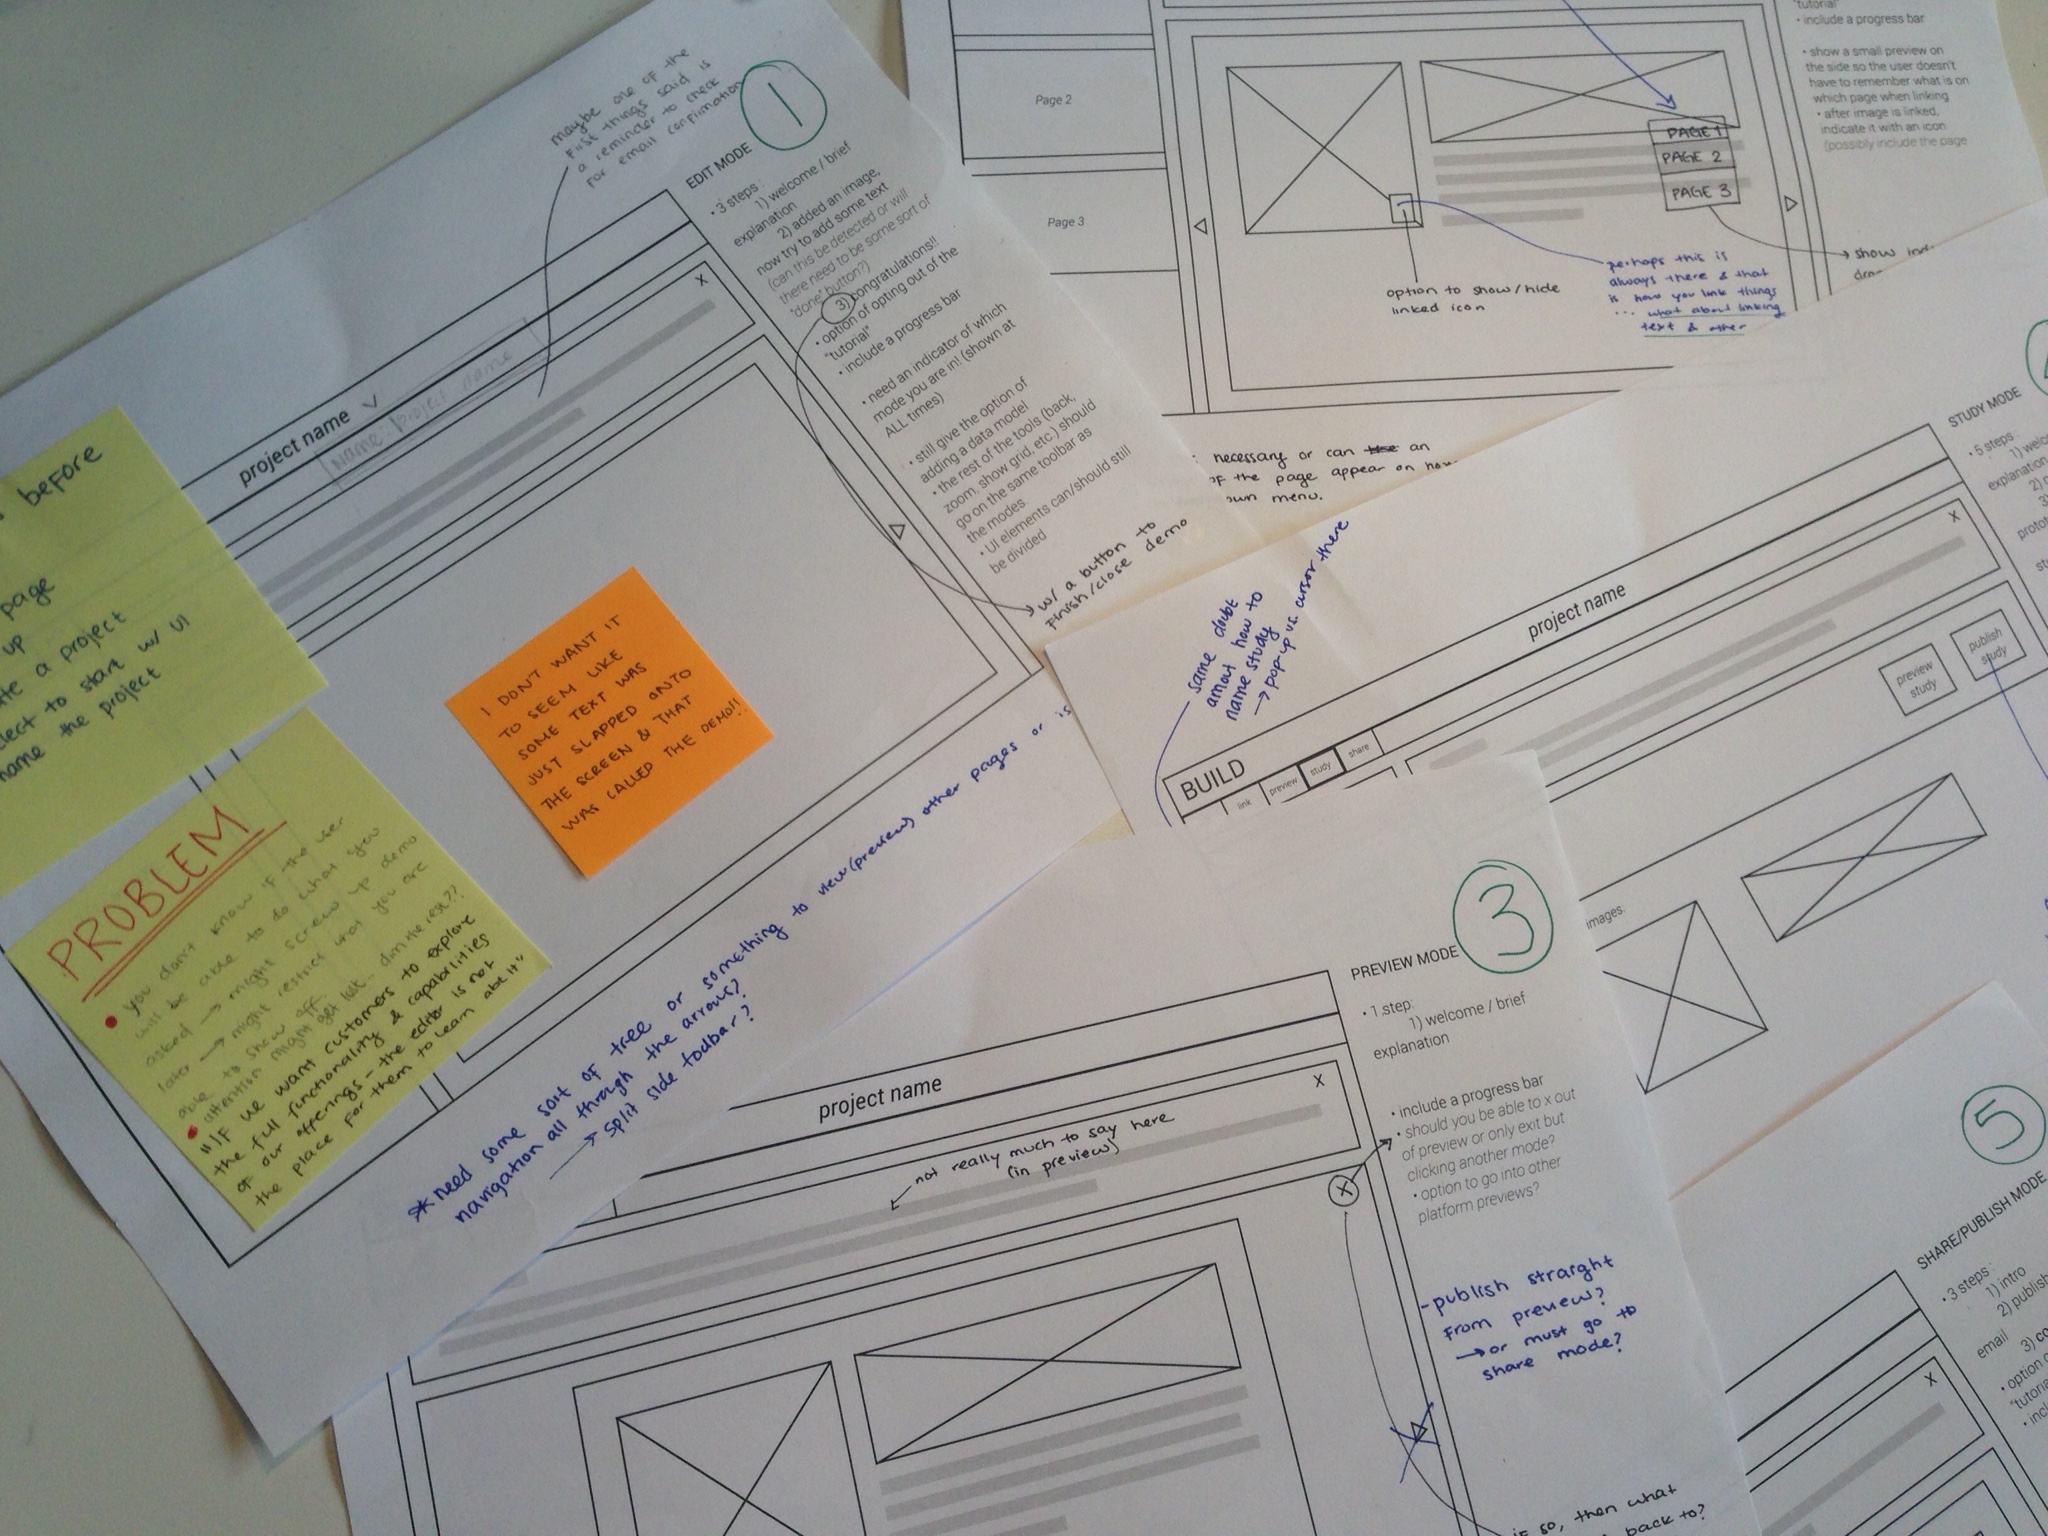 maybe one of the
first things said is
a reminder to check
for email confirmation
1
EDIT MODE
• 3 steps:
1) welcome / brief
explanation
2) added an image,
now try to add some text
(can this be detected or will
there need to be some sort of
"done" button?)
3) congratulations!!
• option of opting out of the
"tutorial"
• include a progress bar
• need an indicator of which
mode you are in! (shown at
ALL times)
• still give the option of
adding a data model
• the rest of the tools (back,
zoom, show grid, etc.) should
go on the same toolbar as
the modes
• UI elements can/should still
be divided
w/ a button to
finish/close demo
project name
Name: Project name
X
before
page
up
a project
to start w/ UI
name the project
PROBLEM
• you don't know if the user
will be able to do what you
asked → might screw up demo
later → might restrict what you are
able to show off
• attention might get lost..
"If we want customers to explore
the full functionality & capabilities
of our offerings – the editor is not
the place for them to learn
abt it"
I DON'T WANT IT
TO SEEM LIKE
SOME TEXT WAS
JUST SLAPPED ONTO
THE SCREEN & THAT
WAS CALLED THE DEMO!!
* need some sort of tree or something to view (preview) other pages or is
navigation all through the arrows?
→ split side toolbar?
Page 2
Page 3
PAGE 1
PAGE 2
PAGE 3
option to show/hide
linked icon
perhaps this is
always there & that
is how you link things
... what about linking
text & other
→ show
"tutorial"
• include a progress bar
• show a small preview on
the side so the user doesn't
have to remember what is on
which page when linking
• after image is linked,
indicate it with an icon
(possibly include the page
necessary or can an
of the page appear on
menu.
same doubt
about how to
name study
→ pop-up vs. cursor there
STUDY MODE
• 5 steps:
1)
explanation
2)
3)
project name
X
BUILD
link
preview
study
share
preview
study
publish
study
images.
3
PREVIEW MODE
• 1 step:
1) welcome / brief
explanation
• include a progress bar
• should you be able to x out
of preview or only exit but
clicking another mode?
• option to go into other
platform previews?
project name
X
not really much to say here
(in preview)
X
- publish straight
from preview?
→ or must go to
share mode?
if so, then what
back to?
5
SHARE/PUBLISH MODE
• 3 steps:
1) intro
2) publish
email
3)
• option
"tutorial"
X